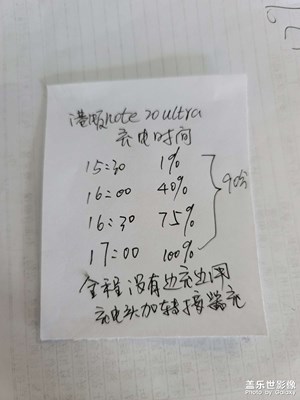 港版note 20 ultra
充电时间
15:30 1%
16:00 40%
16:30 75%
17:00 100%
90分
全程没有边充边用
充电头加转接器充
盖乐世影像
Photo by Galaxy